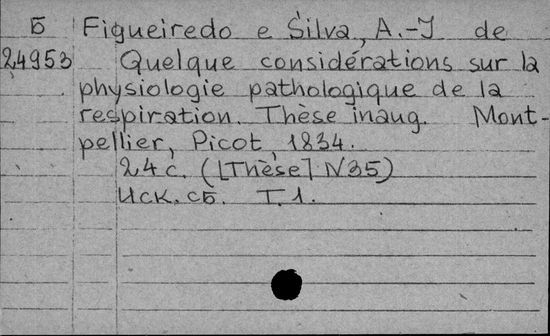 Б Figueiredo e Silva, A.-J de
24953 Quelque considérations sur la
physiologie pathologique de la
respiration. Thèse inaug. Mont-
pellier, Picot, 1834.
24 с. ([Thèse] N35)
Иск. сб. Т. 1.